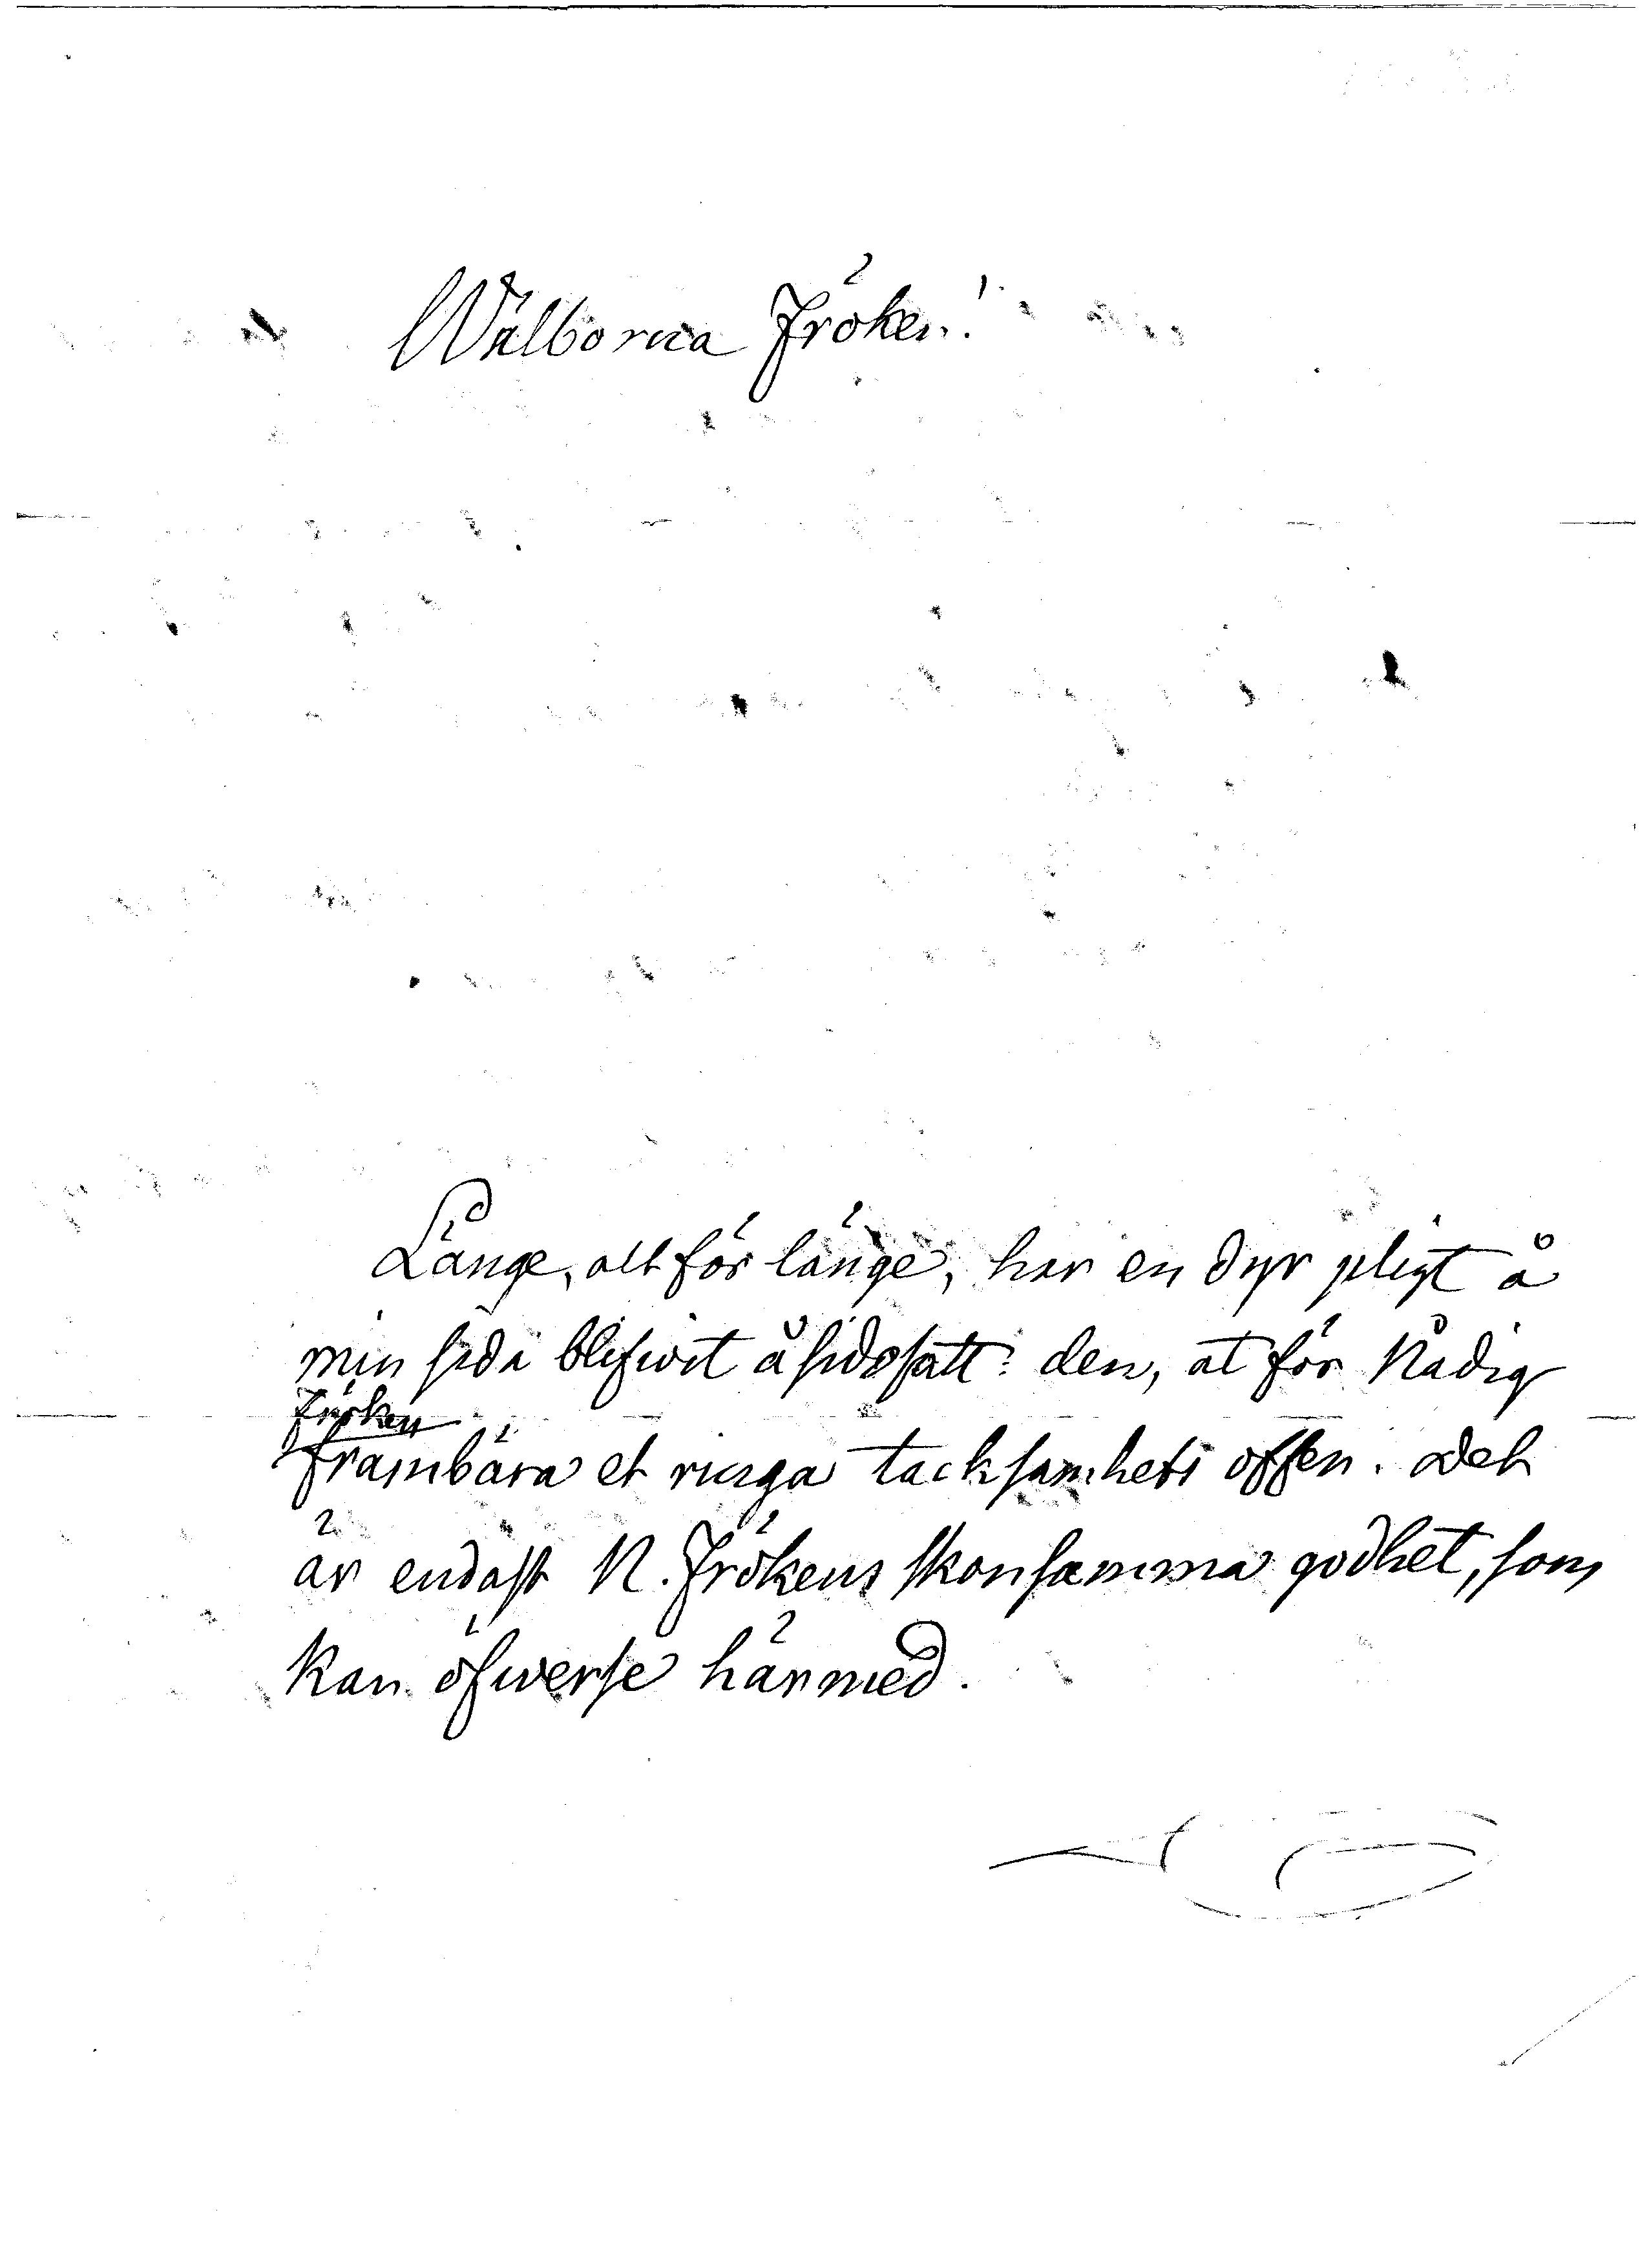 Wälborna Fröken!
Länge, alt för länge, har en dyr pligt å
min sida blifwit åsidosatt: den, at för Nådig
Fröken
frambära et ringa tacksamhets offer. Det
är endast N. Frökens skonsamma godhet, som
kan öfwerse härmed.